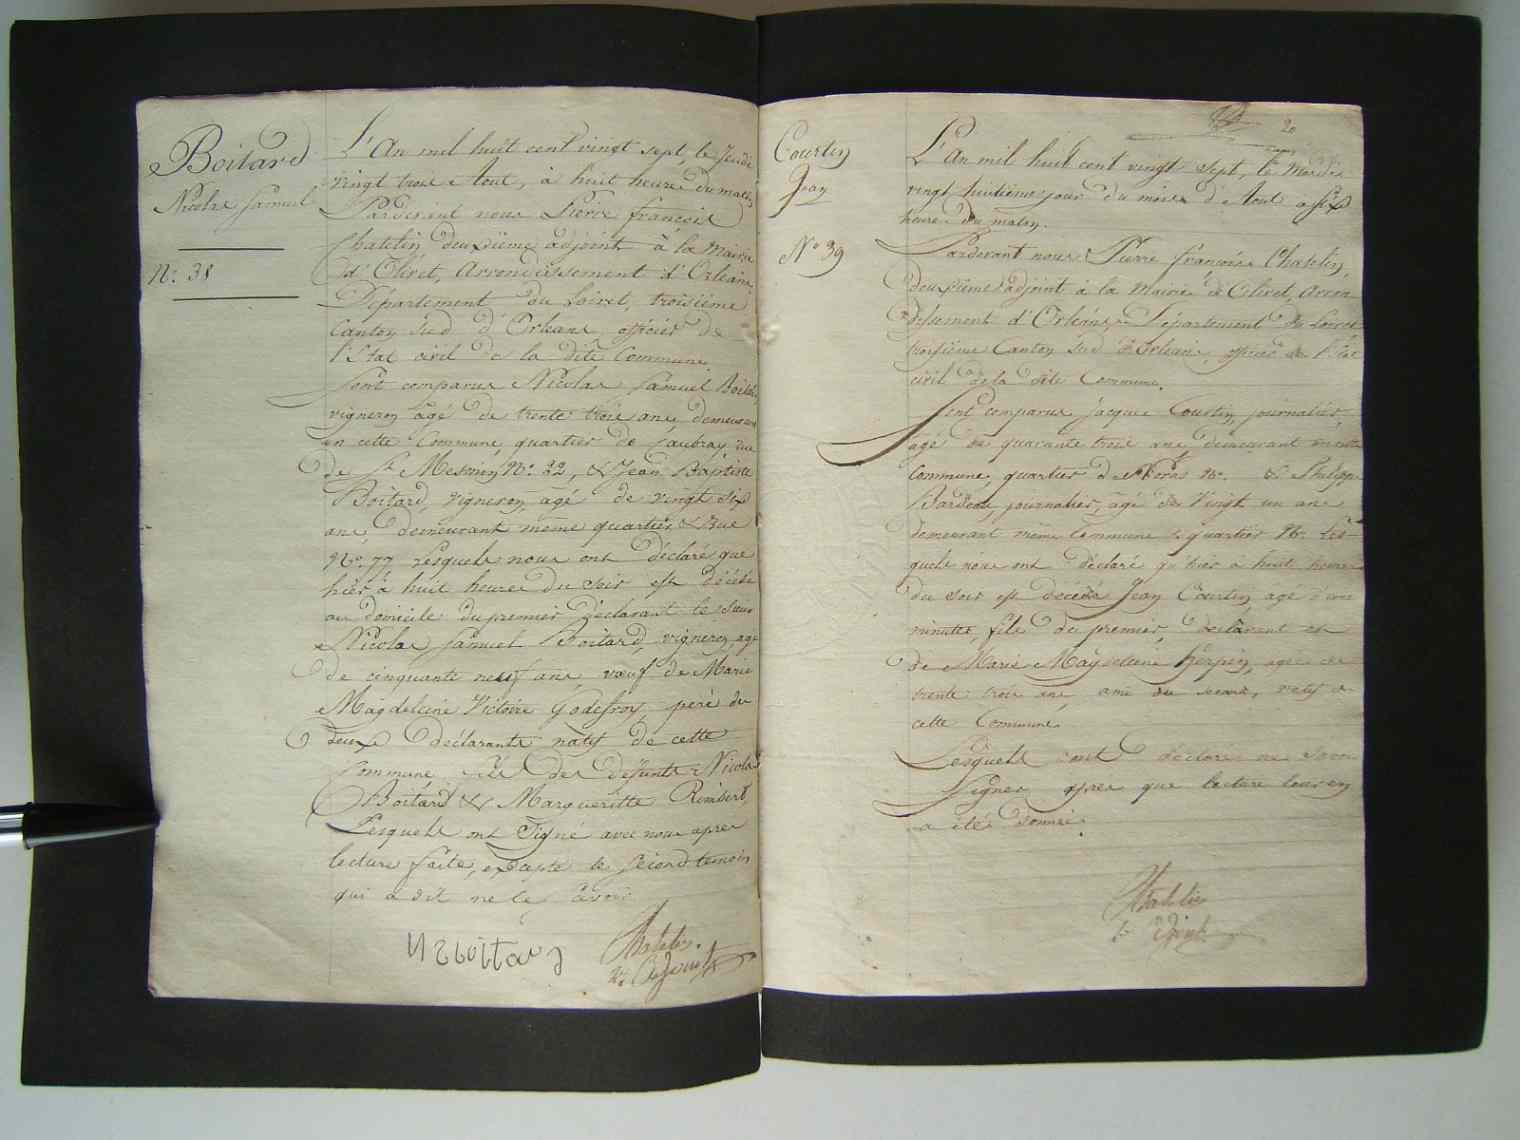 Boitard
Nicolas Samuel
N.° 38
L'An mil huit cent vingt sept, le Jeudi
vingt trois Aout, à huit heures du matin
Pardevant nous Pierre françois
Chatelin deuxième adjoint à la Mairie
d'Olivet, Arrondissement d'Orléans,
Département du Loiret, troisième
Canton Sud d'Orléans, officier de
l'Etat civil de la dite Commune.
Sont comparus Nicolas Samuel Boitard
vigneron âgé de trente trois ans, demeurant
en cette Commune, quartier de Caubray, rue
de St Mesmin N.° 32, & Jean Baptiste
Boitard, vigneron, âgé de vingt six
ans, demeurant même quartier & Rue
N.° 77 lesquels nous ont déclaré que
hier à huit heures du soir est décédé
au domicile du premier déclarant le sieur
Nicolas Samuel Boitard, vigneron, agé
de cinquante neuf ans, veuf de Marie
Magdeleine Victoire Godefroy, père du
deux déclarants natif de cette
Commune, fils des défunts Nicolas
Boitard & Margueritte Rimbert,
Lesquels ont Signé avec nous apres
lecture faite, excepté le second temoin
qui a dit ne le savoir
N S boitard
Chatelin
20
Courtin
Jean
N° 39
L'An mil huit cent vingt sept, le Mardi
vingt huitième jour du mois d'Aout a six
heures du matin.
Pardevant nous Pierre françois Chatelin,
deuxième adjoint à la Mairie d'Olivet, Arron
dissement d'Orléans, Département du Loiret
troisième Canton Sud d'Orléans, officier de l'Etat
civil de la dite Commune.
Sont comparus jacques Courtin, journalier,
agé de quarante trois ans demeurant en cette
Commune, quartier des N.° & Philippe
Bardeau, journalier, agé de Vingt un ans
demeurant même Commune & quartier N.° Les-
quels nous ont déclaré qu'hier à huit heures
du soir est décédé Jean Courtin agé d'une
minutes, fils du premier déclarant et
de Marie Magdeleine herpin, agée de
trente trois ans, natif de
cette Commune.
Lesquels ont déclaré ne savoir
Signer apres que lecture leur en
a été donnée
Chatelin